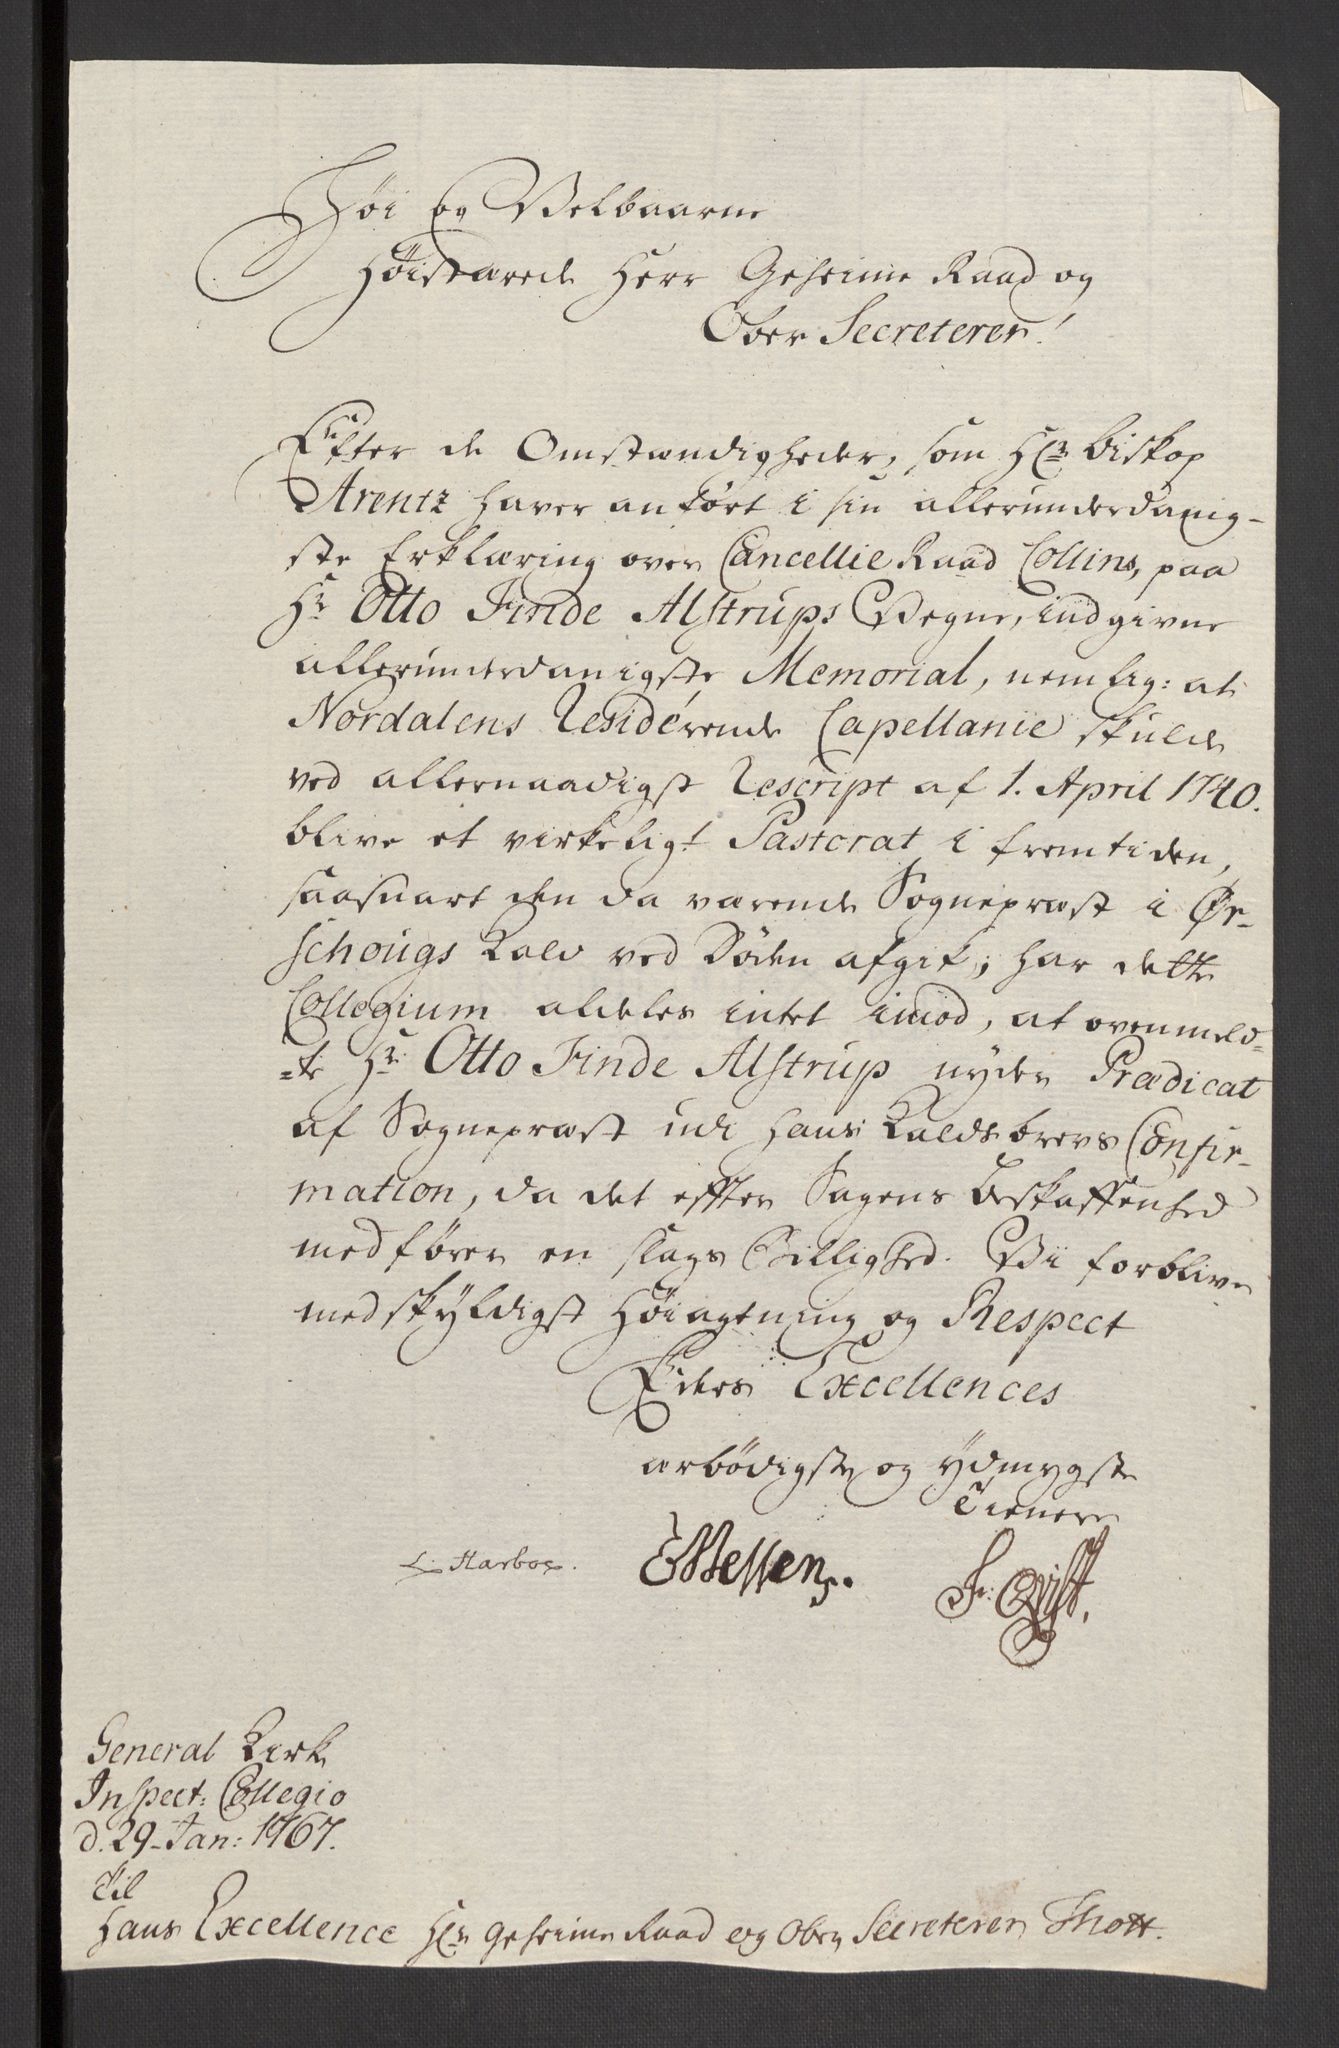 Høi og Velbaarne
Høistærede Herr Geheime Raad og
Ober Secreterer!
Efter de Omstændigheder, som Hr. Biskop
Arentz haver anført i sin allerunderdanig-
ste Erklæring over Cancellie Raad Collins, paa
Hr. Otto Finde Alstrups Vegne, indgivne
allerunderdanigste Memorial, nemlig: at
Nordalens Residerende Capellanie skulde
ved allernaadigst Rescript af 1. April 1740.
blive et virkeligt Pastorat i fremtiden,
saasnart den da værende Sognepræst i Ør-
schougs Kald ved Døden afgik; har dette
Collegium aldeles intet imod, at ovenmeld-
-te Hr. Otto Finde Alstrup nyder Prædicat
af Sognepræst udi hans Kalds brevs Confir-
mation, da det effter Sagens Beskaffenhed
medfører en slags Billighed. Vi forblive
med skyldigst Høiagtning og Respect
Eders Excellences
ærbødigste og ydmygste
Tienere
L. Harboe. EWessen. Fr: Qvist.
General Kirke
Inspect: Collegio
d. 29. Jan: 1767.
Til
Hans Excellence Hr. Geheime Raad og Ober Secreterer Thott.